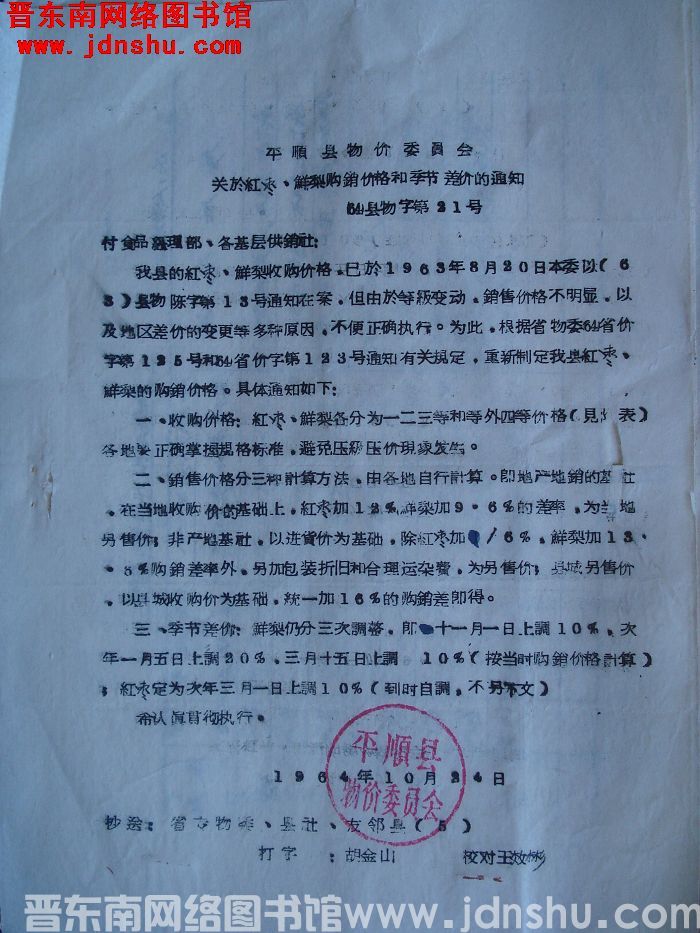 晋东南网络图书馆
www.jdnshu.com
平順县物价委員会
关於紅枣、鮮梨购銷价格和季节差价的通知
64县物字第21号
付食品经理部、各基层供銷社:
我县的紅枣、鮮梨收购价格,已於1963年8月20日本委以(6
3)县物陈字第13号通知在案,但由於等級变动,銷售价格不明显,以
及地区差价的变更等多种原因,不便正确执行。为此,根据省物委64省价
字第125号和64省价字第123号通知有关規定,重新制定我县紅枣、
鮮梨的购銷价格。具体通知如下:
一、收购价格:紅枣、鮮梨各分为一二三等和等外四等价格(見 表)
各地要正确掌握規格标准,避免压級压价現象发生。
二、銷售价格分三种計算方法,由各地自行計算。即地产地銷的基社
,在当地收购价的基础上,紅枣加12%鮮梨加9·6%的差率,为当地
另售价;非产地基社,以进貨价为基础,除紅枣加 16%,鮮梨加13·
8%购銷差率外,另加包装折旧和合理运杂費,为另售价;县城另售价
,以县城收购价为基础,統一加16%的购銷差即得。
三、季节差价:鮮梨仍分三次調整,即十一月一日上調10%,次
年一月五日上調20%,三月十五日上調10%(按当时购銷价格計算)
;紅枣定为次年三月一日上調10%(到时自調,不另下文)
希认真貫彻执行。
1964年10月24日
平順县
物价委員会
抄送:省专物委、县社、友邻县(5)
打字:胡金山 校对王效彬
晋东南网络图书馆 www.jdnshu.com